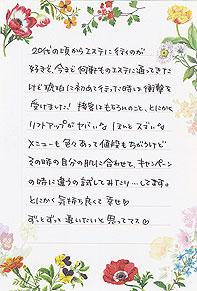 20代の頃からエステに行くのが
好きで、今まで何軒ものエステに通ってきた
けど琥珀に初めて行った時は衝撃を
受けました! 接客はもちろんのこと、とにかく
リフトアップがヤバいな ほんとスゴいな
メニューも色々あって値段もちがうけど
その時の自分の肌に合わせて、キャンペーン
の時に違うの試してみたり…してます。
とにかく気持ち良くて幸せ♡
ずっとずっと通いたいと思ってマス♡